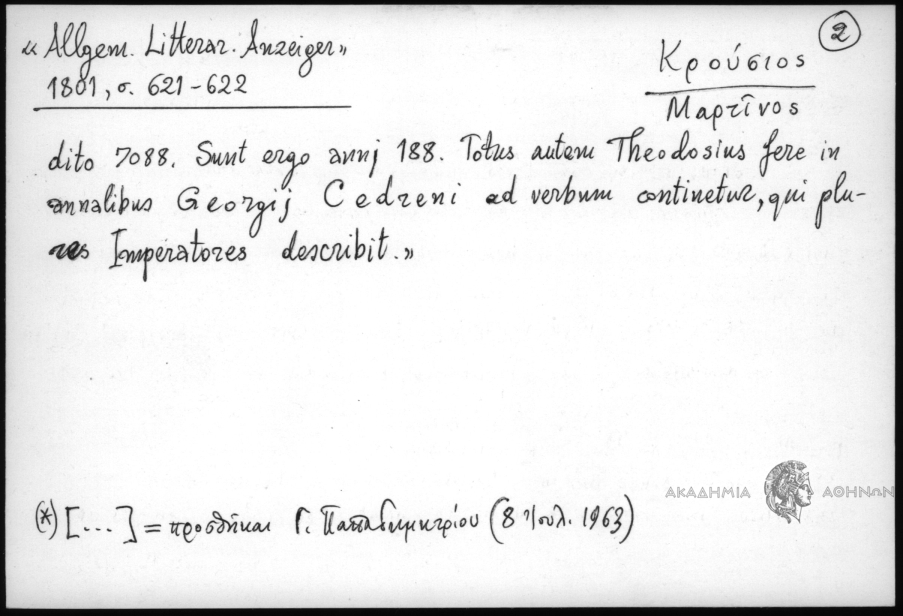 « Allgem. Litterar. Anzeiger»
1801, σ. 621-622
2
Κρούσιος
Μαρτῖνος
dito 7088. Sunt ergo annj 188. Totus autem Theodosius fere in
annalibus Georgij Cedreni ad verbum continetur, qui plu-
res Imperatores describit.»
ΑΚΑΔΗΜΙΑ ΑΘΗΝΩΝ
(*) [...] = προσθῆκαι Γ. Παπαδημητρίου (8 Ἰουλ. 1963)